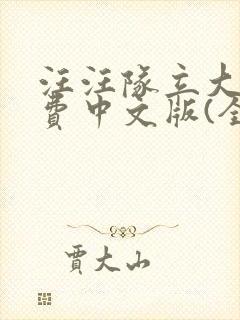 汪汪隊立大
費中文版(全
賈大山